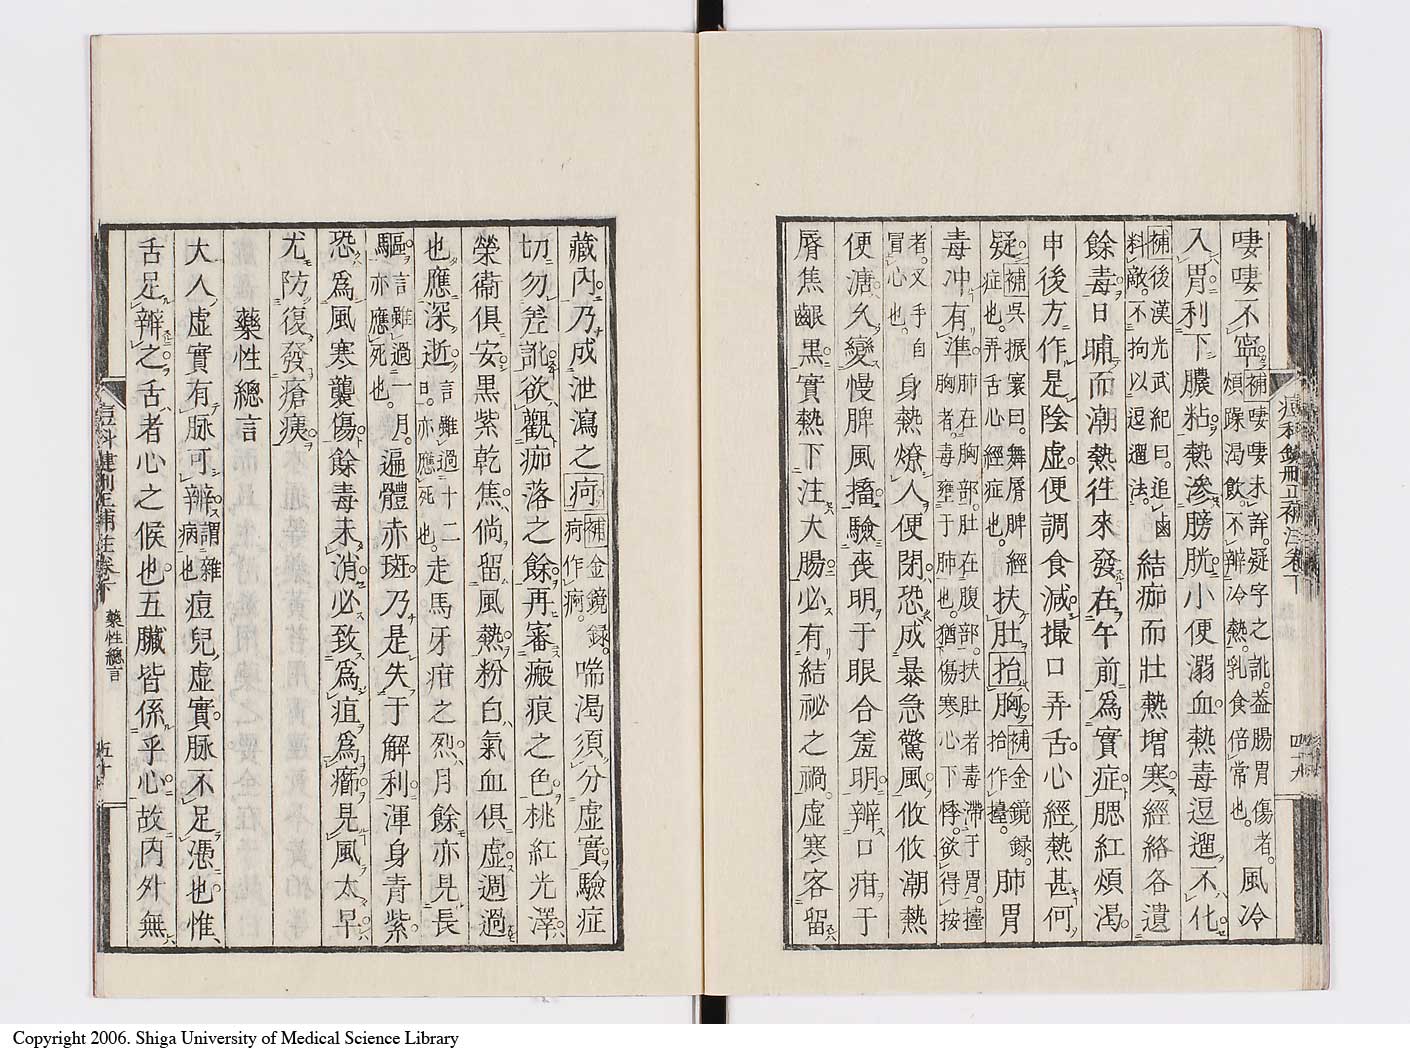 啛啛不寧補啛啛未詳。疑字之訛。蓋腸胃傷者。煩躁渴飲。不辨冷熱。乳食倍常也。風冷
入胃利下膿粘熱滲膀胱小便溺血熱毒逗遛不化
補後漢光武紀曰。追鹵料敵。不拘以逗遛法。結痂而壯熱增寒經絡各遺
餘毒日晡而潮熱徃來發在午前爲實症腮紅煩渴
申後方作是陰虛便調食減撮口弄舌心經熱甚何
疑補吳振寰曰。舞脣脾經症也。弄舌心經症也。扶肚抬胸補金鏡錄。抬作擡。肺胃
毒冲有準肺在胸部。肚在腹部。扶肚者毒滯于胃。擡胸者。毒壅于肺也。猶傷寒心下悸。欲得按
者。叉手自冒心也。身熱燎人便閉恐成暴急驚風攸攸潮熱
便溏久變慢脾風搐驗喪明于眼合羞明辨口疳于
脣焦齦黑實熱下注大腸必有結祕之禍虛寒客留
藏內乃成泄瀉之疴補金鏡錄。疴作痾。啼渴須分虛實驗症
切勿差訛欲觀痂落之餘再審瘢痕之色桃紅光澤
榮衞俱安黑紫乾焦倘留風熱粉白氣血俱虛週過
也應深逝言雖過十二日。亦應死也。走馬牙疳之烈月餘亦見長
驅言雖過一月。亦應死也。遍體赤斑乃是失于解利渾身青紫
恐爲風寒襲傷餘毒未消必致爲疽爲癤見風太早
尤防復發瘡痍
藥性總言
大人虛實有脉可辨謂雜病也痘兒虛實脉不足憑也惟
舌足辨之舌者心之候也五臟皆係乎心故內外無
藥性總言